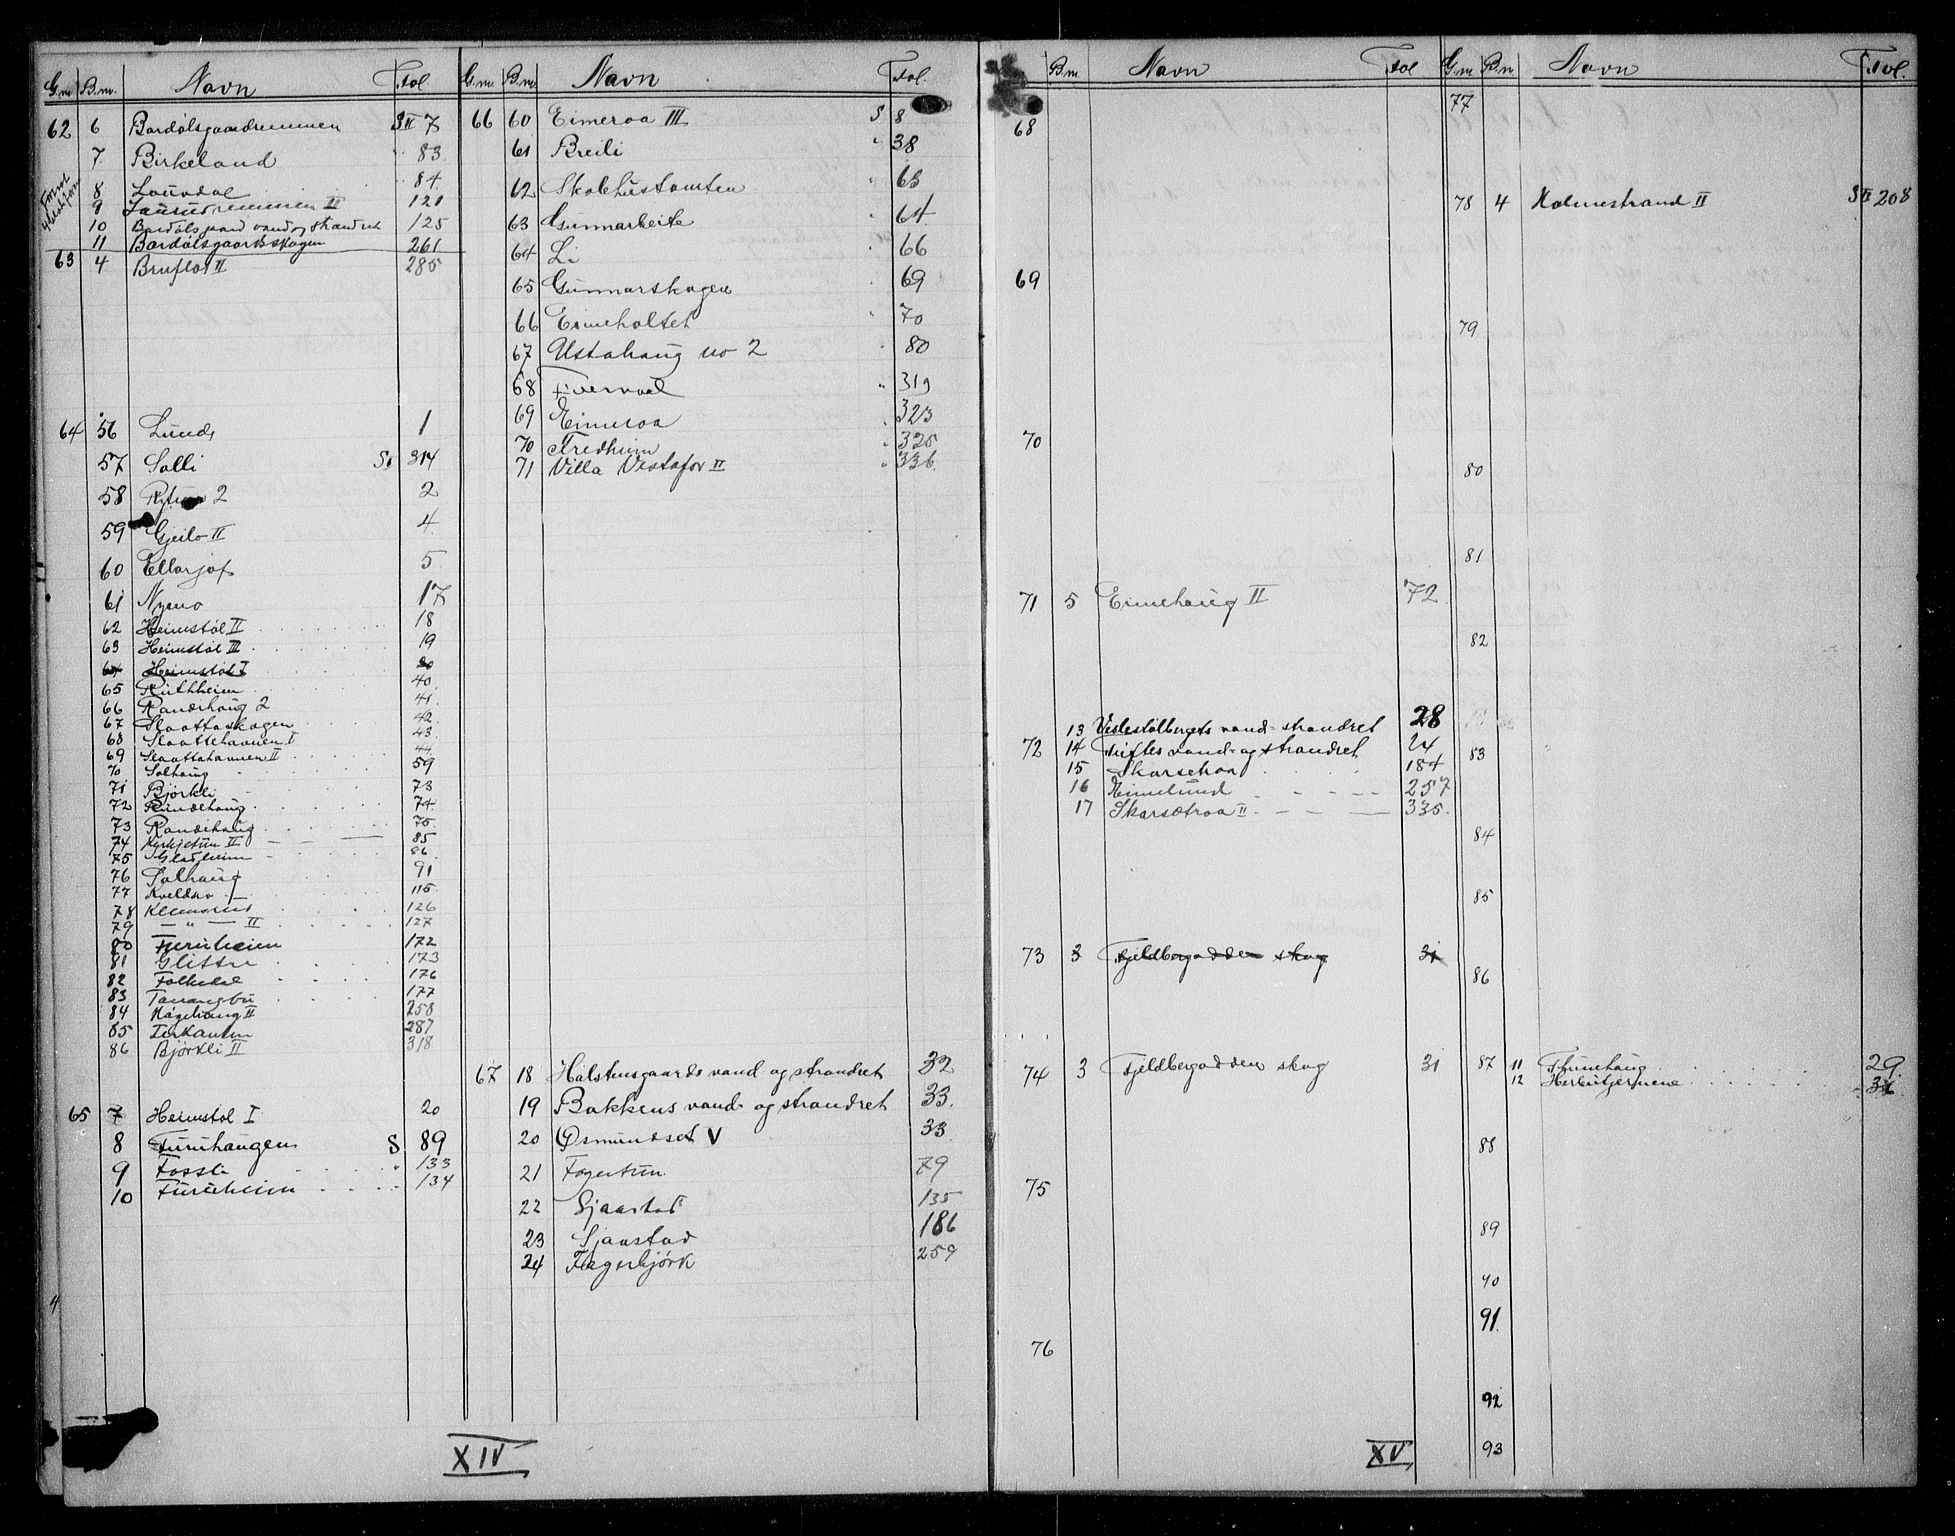 G.nr B.nr. Navn Fol
62 6 Bardølsgaardremmen SII 7
7. Birkeland " 83
8 Laurdal " 84
9 II 121
10 Bardølsgaard vand og strandret 125
11 Bardølsgaardsskogen 261
63 4 Bruflot II 285
64 56 Lunde 1
57 Solli S 314
58 2 2
59 Geilo II 4
60 5
61 Nymo 17
62 Heimstøl II 18
63 Heimstøl III 19
64 Heimstøl I 20
65 Ruthheim 40
66 Randihaug 2 41
67 Slaattaskogen 42
68 Slaattehaumen I 43
69 Slaattehaumen II 44
70 Solhaug 59
71 Björkli 73
72 Rindehaug 74
73 Randihaug 75
74 Kyrkjetun II 85
75 Gladheim 86
76 Solhaug 91
77 Kveldsro 115
78 126
79 — " — II 127
80 Furuheim 172
81 Glittre 173
82 Folkedal 176
83 177
84 Hagehaug II 258
85 287
86 Björkli II 318
65 7 Heimstøl I 20
8 Furuhaugen S 89
9 Fossli " 133
10 Furuheim " 134
G.nr. B.nr. Navn Fol.
66 60 Eimeroa III S 8
61 Breili " 38
62 Skolehustomten " 63
63 Gunnarbeite " 64
64 Li " 66
65 Gunnarskogen 69
66 Eimeholtet " 70
67 Ustahaug no 2 " 80
68 " 319
69 Eimeroa " 323
70 Fredheim " 325
71 Villa Vestafor II " 336.
67 18 Halstensgaards vand og strandret 32
19 Bakkens vand- og strandret 33.
20 Øsmundset V 33
21 Fagertun 79
22 Sjaastad 135
23 Sjaastad 186
24 Fagerbjörk 259
XIV
B.nr Navn Fol
68
69
70
71 5 Eimehaug II 72
72
13 Veslestølbergets vand- strandret 28
14 Tuftes vand- og strandret 24
15 Skarsetroa 184
16 Heimelund 257
17 Skarsetroa II 335.
73 3 Fjeldbergadden skog 31
74 3 Fjeldbergadden skog 31
75
76
XV
G.nr B.nr Navn Fol.
77
78 4 Holmestrand II SII 208
79
80
81
82
83
84
85
86
87 11 Thunehaug 29.
12 Herbutjernene 31
88
89
90
91.
92
93